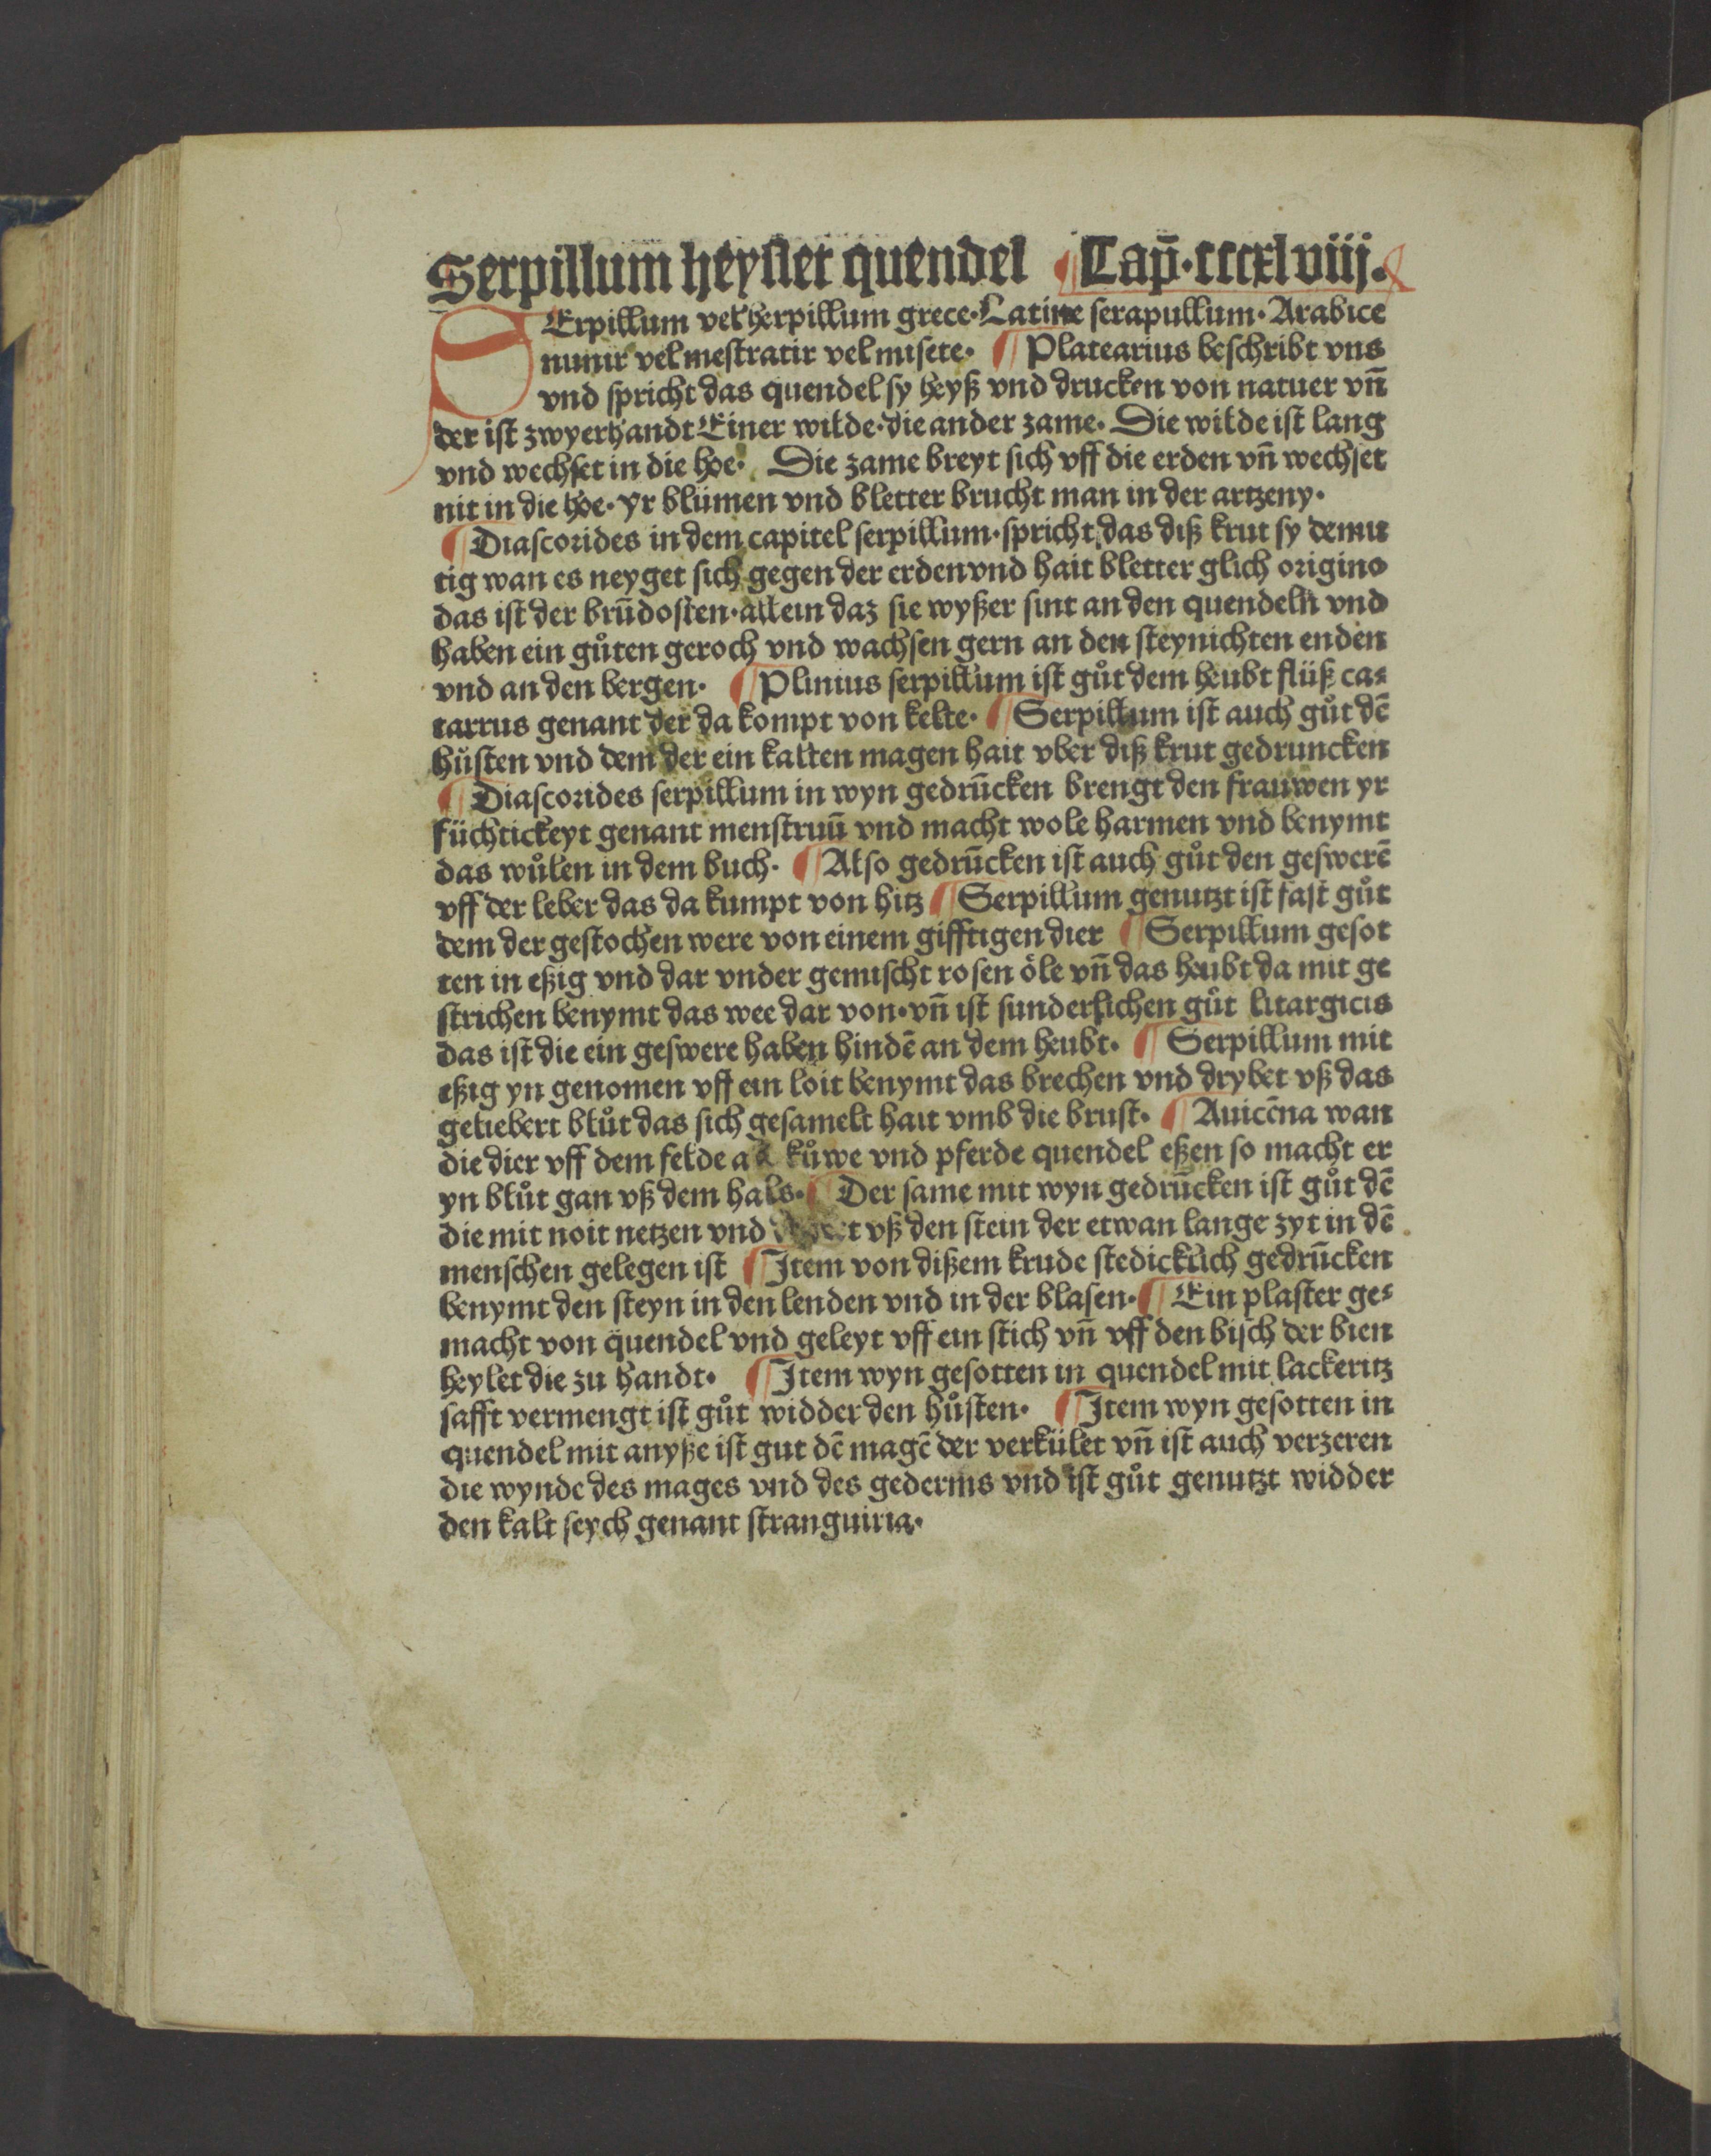 Serpillum heysset quendel ¶ Cap̄·cccxlviij.
SErpillum vel herpillum grece·Latine serapullum·Arabice
numir vel mestratir vel misete· ¶ Platearius beschribt vns
vnd spricht das quendel sy heyß vnd drucken von natuer vn̄
der ist zwyerhandt Einer wilde·die ander zame· Die wilde ist lang
vnd wechset in die hoe· Die zame breyt sich vff die erden vn̄ wechset
nit in die hoe·yr blůmen vnd bletter brucht man in der artzeny·
¶ Diascorides in dem capitel serpillum·spricht das diß krut sy demu
tig wan es neyget sich gegen der erden vnd hait bletter glich origino
das ist der brūdosten·allein daz sie wyßer sint an den quendeln vnd
haben ein gůten geroch vnd wachsen gern an den steynichten enden
vnd an den bergen· ¶ Plinius serpillum ist gůt dem heubt flüß ca⸗
tarrus genant der da kompt von kelte· ¶ Serpillum ist auch gůt dē
hůsten vnd dem der ein kalten magen hait vber diß krut gedruncken
¶ Diascorides serpillum in wyn gedrūcken brengt den frauwen yr
füchtickeyt genant menstruū vnd macht wole harmen vnd benymt
das wůlen in dem buch· ¶ Also gedrūcken ist auch gůt den geswerē
vff der leber das da kumpt von hitz ¶ Serpillum genutzt ist fast gůt
dem der gestochen were von einem gifftigen dier ¶ Serpillum gesot
ten in eßig vnd dar vnder gemischt rosen öle vn̄ das heubt da mit ge
strichen benymt das wee dar von·vn̄ ist sunderlichen gůt litargicis
das ist die ein geswere haben hindē an dem heubt· ¶ Serpillum mit
eßig yn genomen vff ein loit benymt das brechen vnd drybet vß das
geliebert blůt das sich gesamelt hait vmb die brust· ¶ Auicēna wan
die dier vff dem felde als kůwe vnd pferde quendel eßen so macht er
yn blůt gan vß dem hals· ¶ Der same mit wyn gedrūcken ist gůt dē
die mit noit netzen vnd vß den stein der etwan lange zyt in dē
menschen gelegen ist ¶ Item von dißem krude stedicklich gedrūcken
benymt den steyn in den lenden vnd in der blasen· ¶ Ein plaster ge⸗
macht von quendel vnd geleyt vff ein stich vn̄ vff den bisch der bien
heylet die zu handt· ¶ Item wyn gesotten in quendel mit lackeritz
safft vermengt ist gůt widder den hůsten· ¶ Item wyn gesotten in
quendel mit anyße ist gut dē magē der verkület vn̄ ist auch verzeren
die wynde des mages vnd des gederms vnd ist gůt genutzt widder
den kalt seych genant stranguiria·